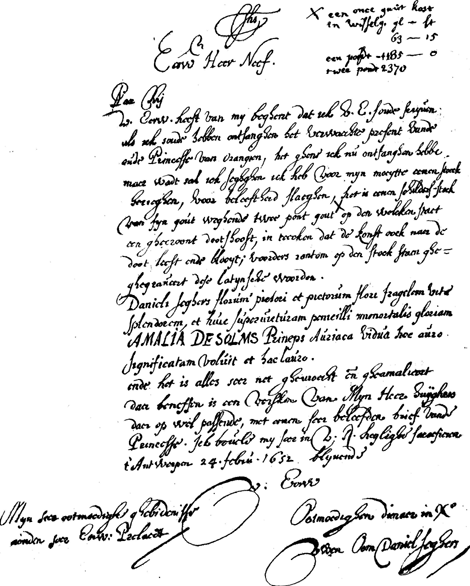 een once gout kost
in wisselg. gl – st
63 – 15
een pondt – 1185 – 0
twee pont 2370
Eerw Heer Neef.
Pax Chri
V. Eerw. heeft van my begheert dat ick V. E. soude
als ick soude hebben ontfanghen het verwachte present vande
oude Princesse van orangien, het ghene ick nu ontfanghen hebbe
maer wadt sal ick segghen ick heb voor myn moeyte eenen stock
voor beleeftheid slaeghen, het is eenen schilder stock
van fyn gout weghende twee pont gout op den welcken staet
een ghecroont doots hooft, in teecken dat de konst oock naer de
doot leeft ende bloyt; voorders rontom op den stock staen ghe-
ghegraveert dese latynsche woorden.
Danieli Seghers florum pictori et pictorum flori fragilem vitæ
splendorem, et huic penicilli immortalis gloriam
AMALIA DE SOLMS Princeps Auriaca Vidua hoc auro
significatam voluit et hac lauro.
ende het is alles seer net ghewrocht en gheamalieert
daer beneffen is een Van Myn Heer
daer op wel passende, met eenen seer beleefden brief vande
Princesse. Ick bevele my seer in V. heylighe sacrificien
t'Antwerpen 24. febru: 1652 blyvende
V: Eerw
Myn seer ootmoedighe ghebidenisse
aenden seer Eerw: Prelaet
Ootmoedighen dienaer in X°
Oom Daniel Seghers